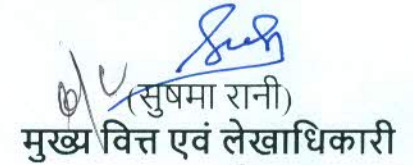 (सुषमा रानी)
मुख्य वित्त एवं लेखाधिकारी